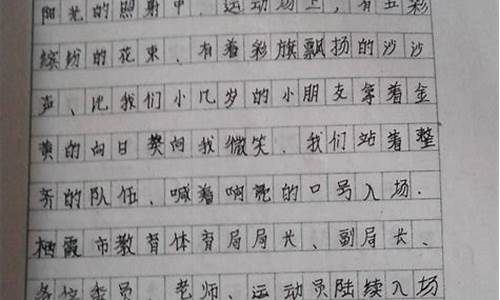 阳光的照射中．运动场上，有五彩
缤纷的花束、有着彩旗飘扬的沙沙
声、比我们小几岁的小朋友拿着金
黄的向日葵向我微笑．我们站着整
齐的队伍、喊着响亮的口号入场．
栖霞市教育体育局局长、副局长、
各校委员、老师、运动员陆续入场